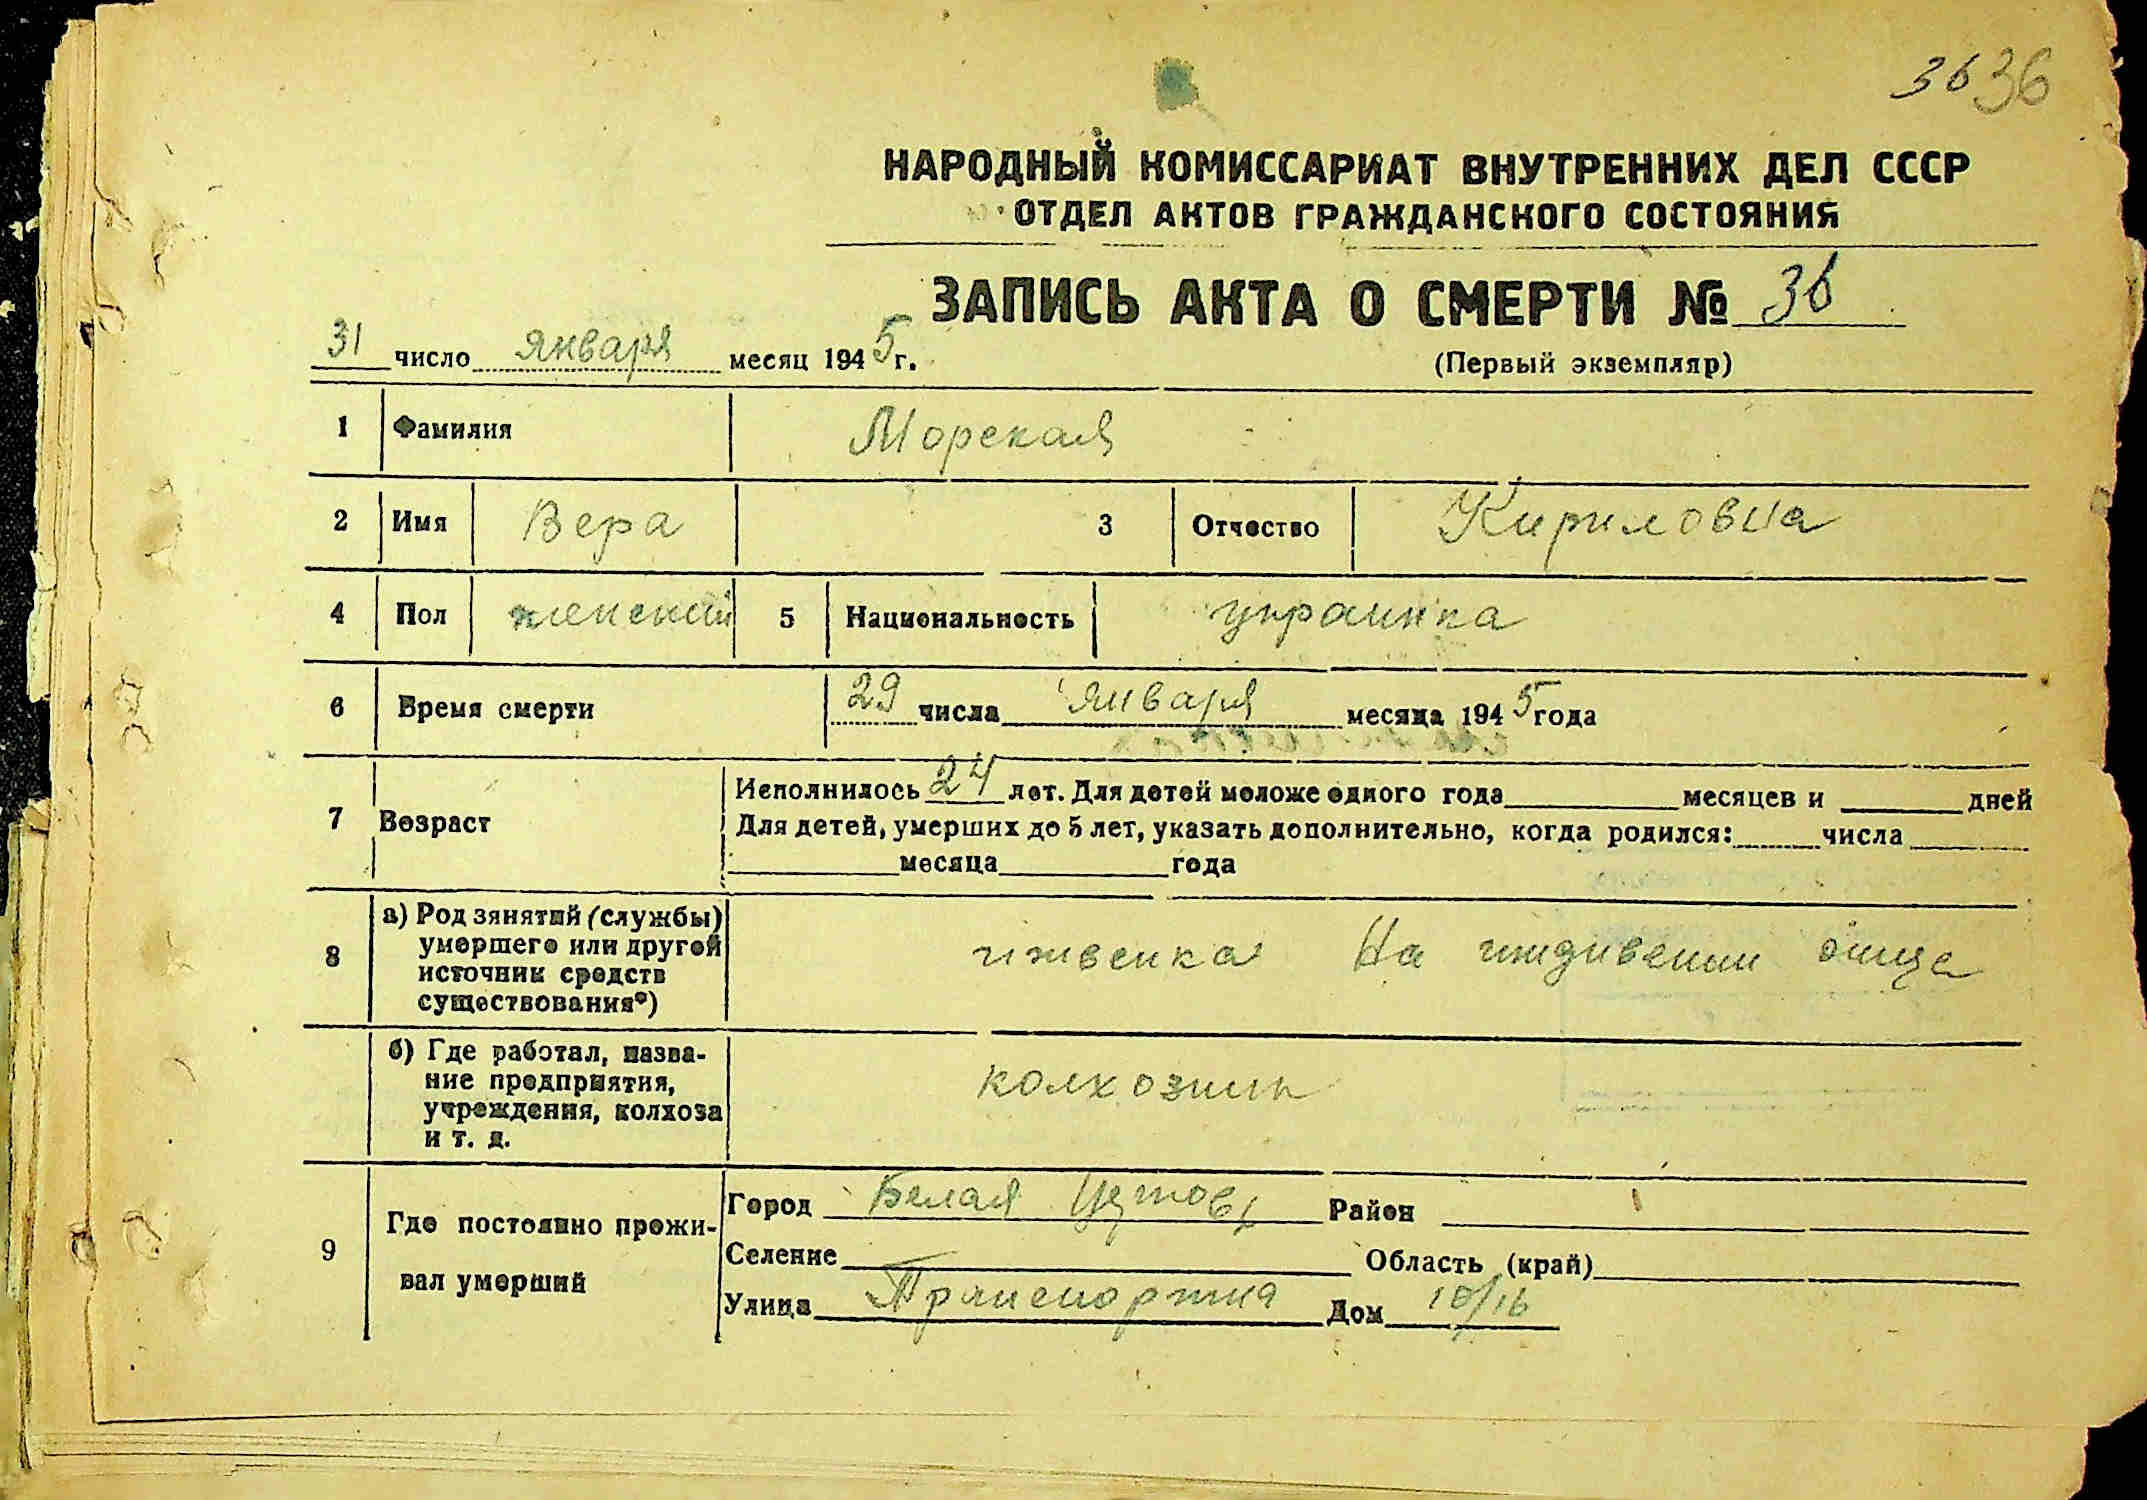 36 36
НАРОДНЫЙ КОМИССАРИАТ ВНУТРЕННИХ ДЕЛ СССР
ОТДЕЛ АКТОВ ГРАЖДАНСКОГО СОСТОЯНИЯ
ЗАПИСЬ АКТА О СМЕРТИ № 36
31 число января месяц 1945 г.
(Первый экземпляр)
1 Фамилия Морская
2 Имя Вера 3 Отчество Кириловна
4 Пол женский 5 Национальность украинка
6 Время смерти 29 числа января месяца 1945 года
7 Возраст
Исполнилось 24 лет. Для детей моложе одного года месяцев и дней
Для детей, умерших до 5 лет, указать дополнительно, когда родился: числа
месяца года
8 а) Род занятий (службы)
умершего или другой
источник средств
существования*)
На иждивении отца
б) Где работал, назва-
ние предприятия,
учреждения, колхоза
и т. д.
колхозник
9 Где постоянно прожи-
вал умерший
Город Белая Церковь Район
Селение Область (край)
Улица Дом 10/16